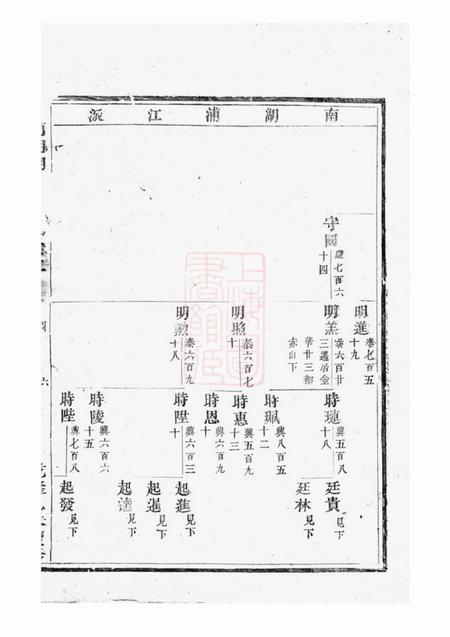 南湖浦江派
守國
歲七百六
十四
明進
泰七百五
十九
明羔
泰六百廿
三遷居金
華廿三都
赤山下
明照
泰六百七
十
明勲
泰六百九
十八
時璉
興五百八
十八
時珮
興八百五
十二
時惠
興五百九
十三
時恩
興六百九
十
時陞
興六百三
十
時陵
興六百六
十五
時陛
興七百八
廷貴
見下
廷林
見下
起進
見下
起暹
見下
起達
見下
起發
見下
六